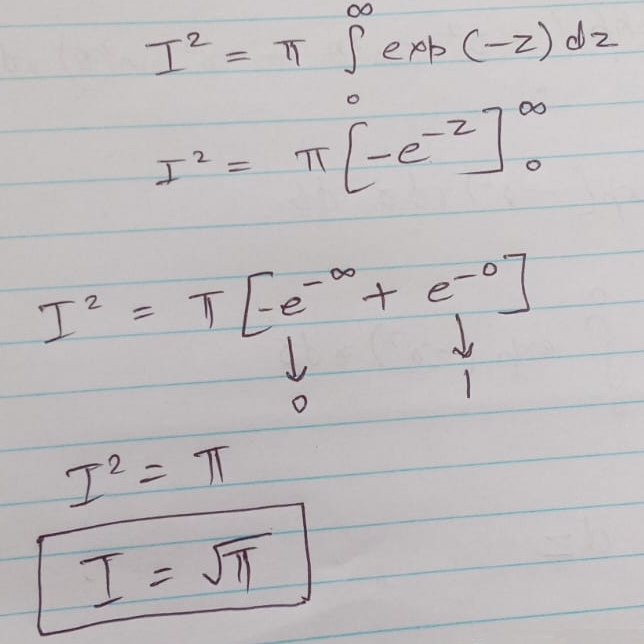 I² = π ∫₀^∞ exp(-z) dz
I² = π [-e^{-z}]₀^∞
I² = π [-e^{-∞} + e^{-0}]
↓ ↓
0 1
I² = π
I = √π